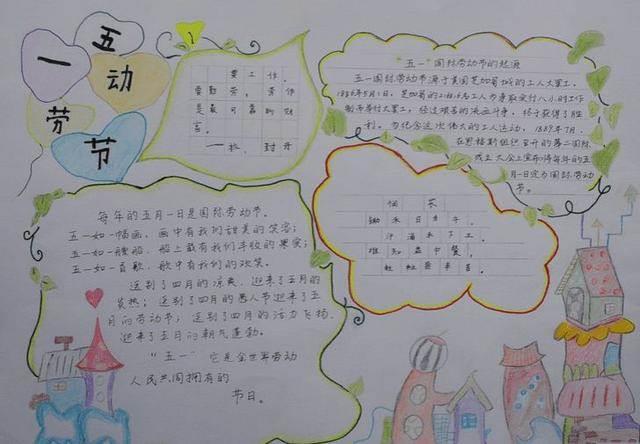 五一
劳动节
要工作，
要勤劳，劳作
是最可靠的财
富。
——拉·封丹
“五一”国际劳动节的起源
五一国际劳动节源于美国芝加哥城的工人大罢工。
1886年5月1日，芝加哥的21.6万名工人为争取实行八小时工作
制而举行大罢工，经过艰苦的流血斗争，终于获得了胜
利。为纪念这次伟大的工人运动，1889年7月，
在恩格斯组织召开的第二国际
成立大会上宣布将每年的五
月一日定为国际劳动
节。
悯农
锄禾日当午，
汗滴禾下土。
谁知盘中餐，
粒粒皆辛苦。
每年的五月一日是国际劳动节。
五一如一幅画，画中有我们甜美的笑容；
五一如一艘船，船上载有我们丰收的果实；
五一如一首歌，歌中有我们的欢笑。
送别了四月的凉爽，迎来了五月的
炎热；送别了四月的愚人节迎来了五
月的劳动节；送别了四月的活力飞扬，
迎来了五月的朝气蓬勃。
“五一”它是全世界劳动
人民共同拥有的
节日。